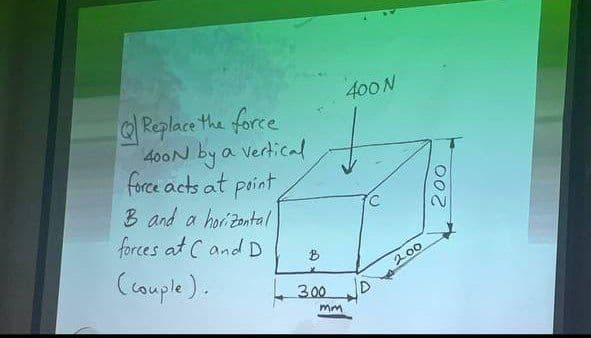 Q| Replace the force
400N by a vertical
force acts at point
B and a horizontal
forces at C and D
(couple).
400N
C
200
B
200
300
D
mm